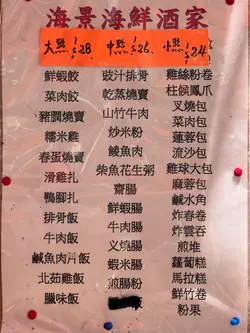 海景海鮮酒家
大點 $28
鮮蝦餃
菜肉餃
豬膶燒賣
糯米雞
春蛋燒賣
滑雞扎
鴨腳扎
排骨飯
牛肉飯
鹹魚肉片飯
北菇雞飯
臘味飯
中點 $26
豉汁排骨
乾蒸燒賣
山竹牛肉
炒米粉
鯪魚肉
柴魚花生粥
齋腸
鮮蝦腸
牛肉腸
义燒腸
蝦米腸
煎腸粉
小點 $24
雞絲粉卷
柱侯鳳爪
叉燒包
菜肉包
蓮蓉包
流沙包
雞球大包
麻蓉包
鹹水角
炸春卷
炸雲吞
煎堆
蘿蔔糕
馬拉糕
鮮竹卷
粉果